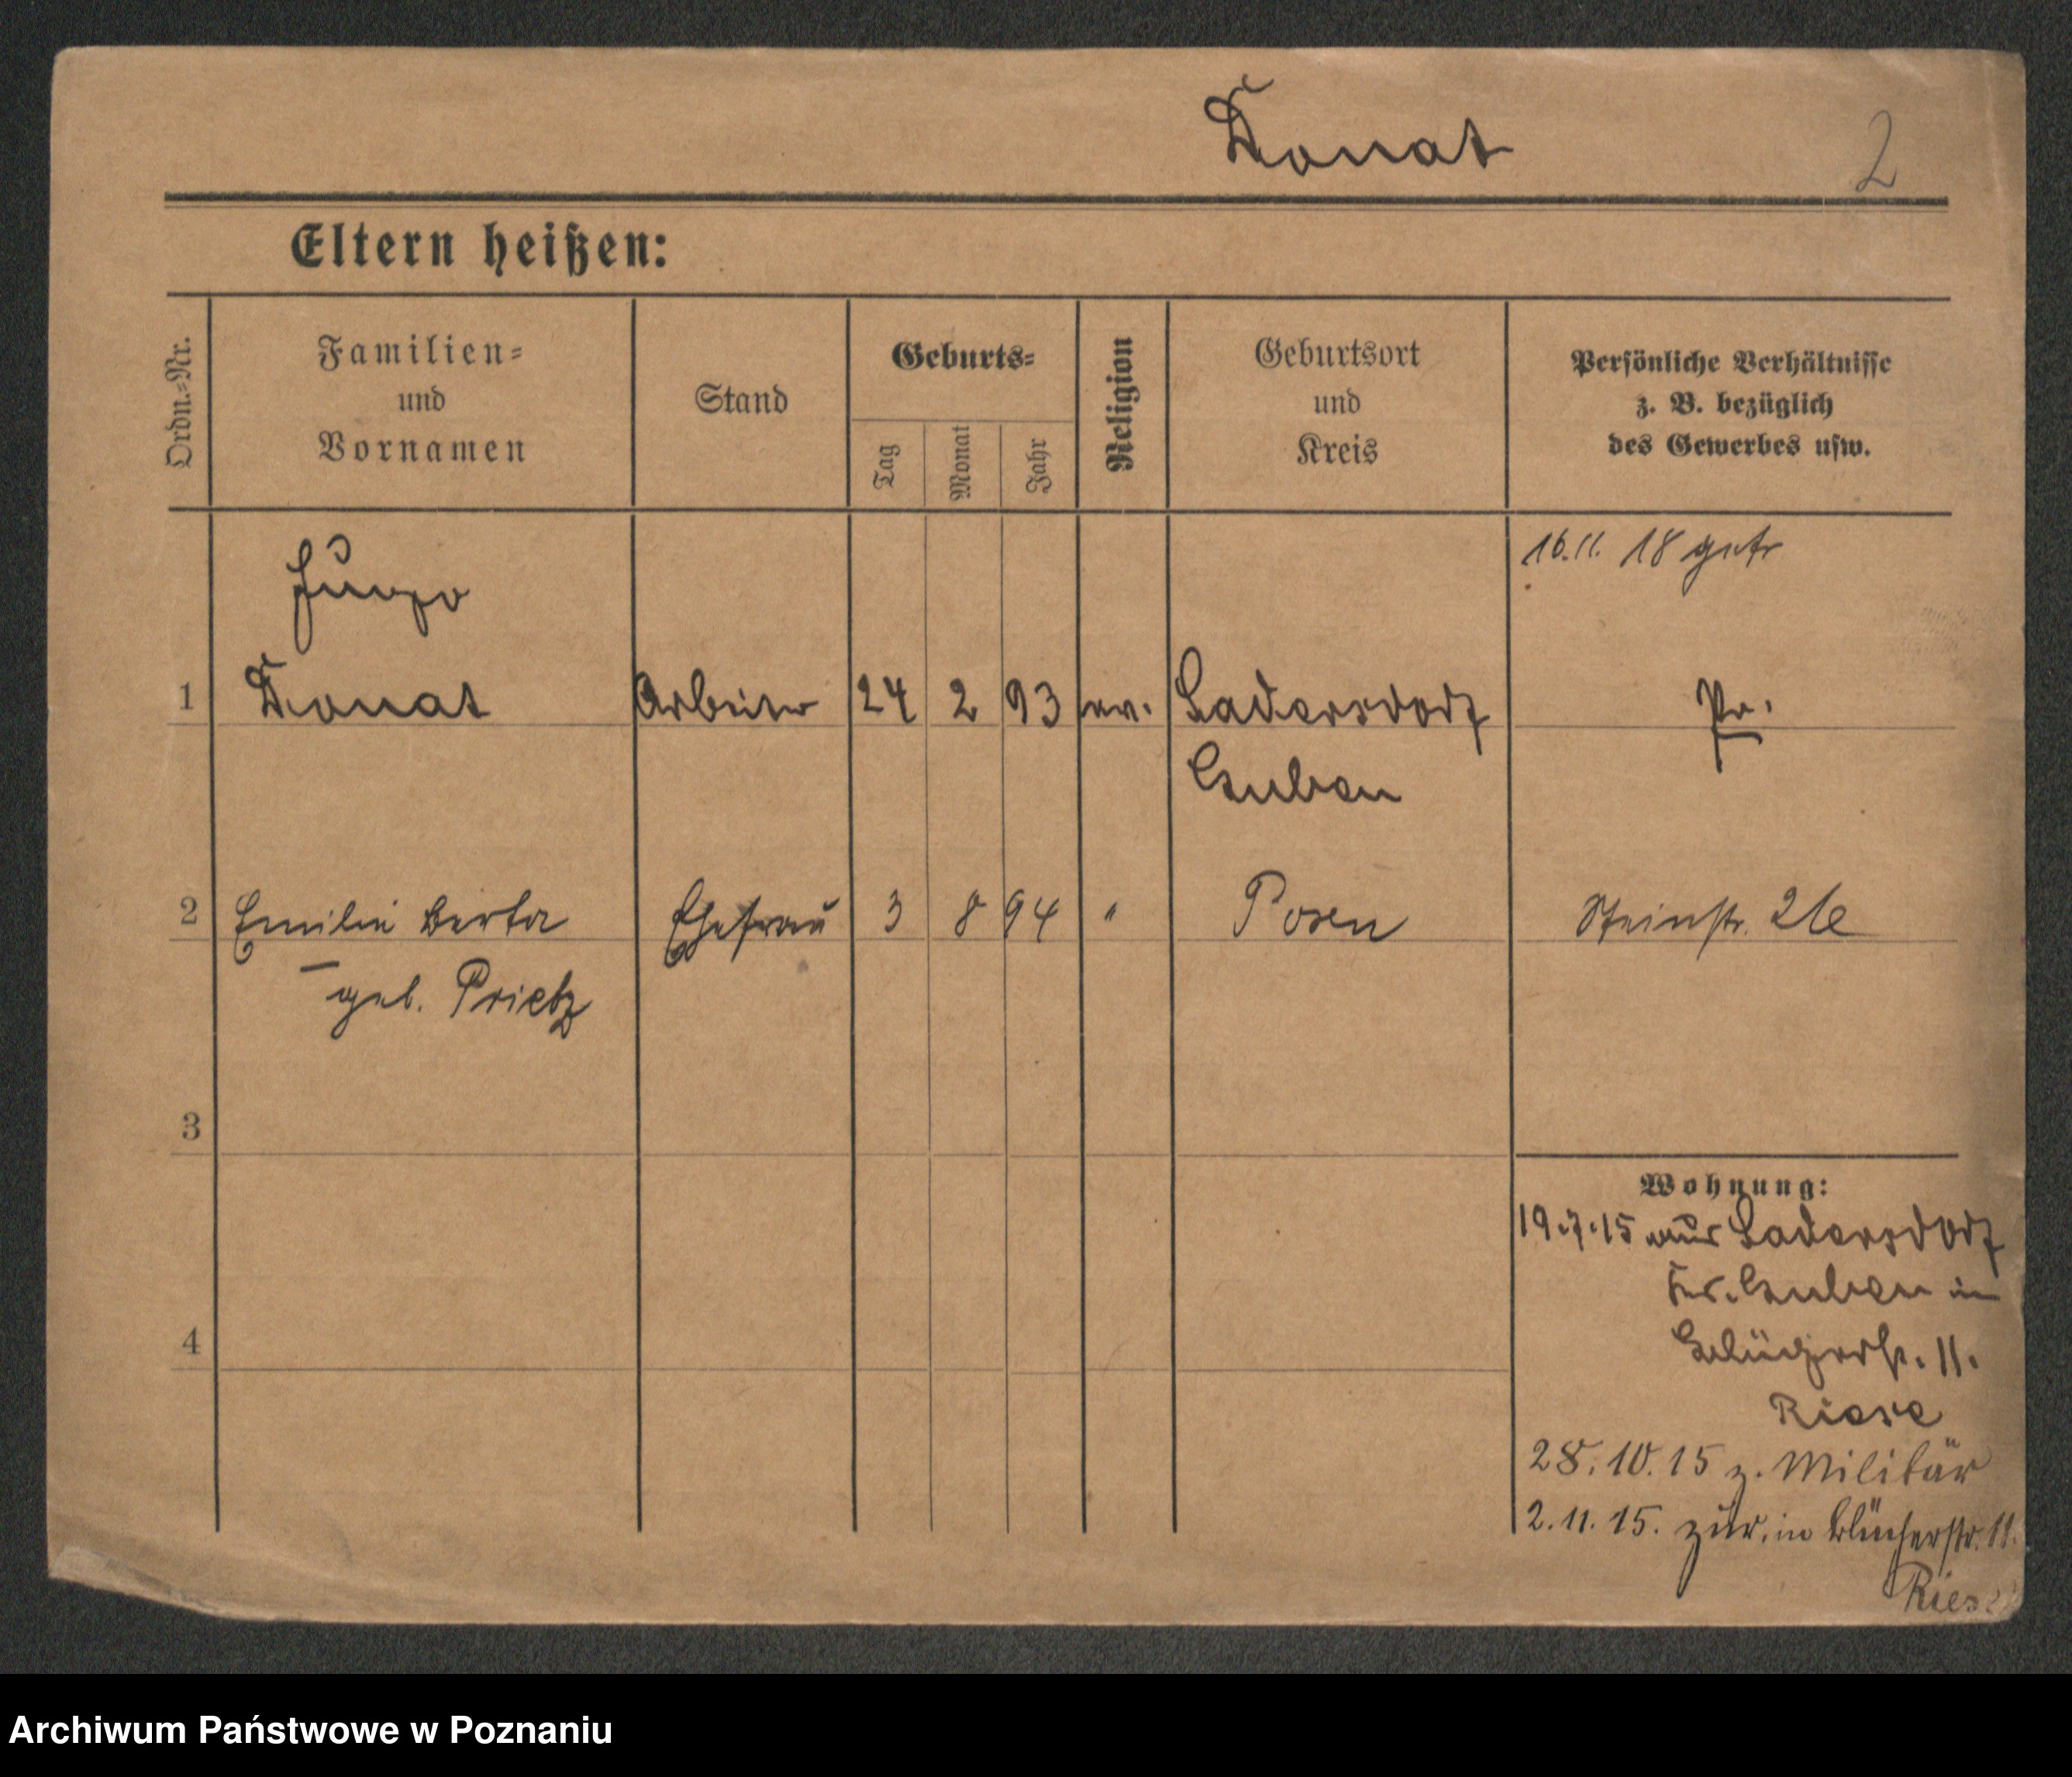 Donat
2
Eltern heißen:
Ordn.-Nr.
Familien-
und
Vornamen
Stand
Geburts-
Tag
Monat
Jahr
Religion
Geburtsort
und
Kreis
Persönliche Verhältnisse
z. B. bezüglich
des Gewerbes usw.
16.11. 18 getr
Hugo
1 Donat Arbeiter 24 2 93 ev. Ladersdorf Pr.
Guben
2 Emilie Berta Ehefrau 3 8 94 " Posen Steinstr. 2
geb. Prietz
3
Wohnung:
19.7.15 aus Ladersdorf
Kr. Guben in
4
Blücherstr. 11.
Riese
28.10.15 z. Militär
2.11.15. zur. in Blücherstr. 11.
Riese
Archiwum Państwowe w Poznaniu